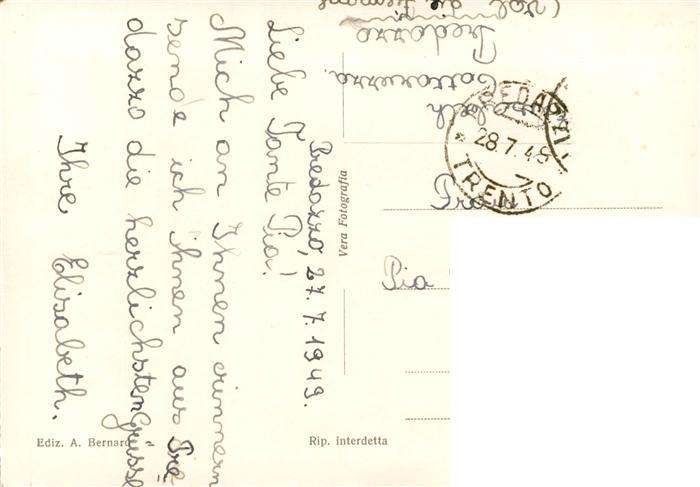 Predazzo, 27.7.1949.
Liebe Tante Pia!
Mich an Ihnen erinnern
sende ich ihnen aus Pre
dazzo die herzlichsten Grüsse
Ihre Elisabeth.
Predazzo
PREDAZZO
28.7.49
TRENTO
Pia
Vera Fotografia
Ediz. A. Bernard
Rip. interdetta